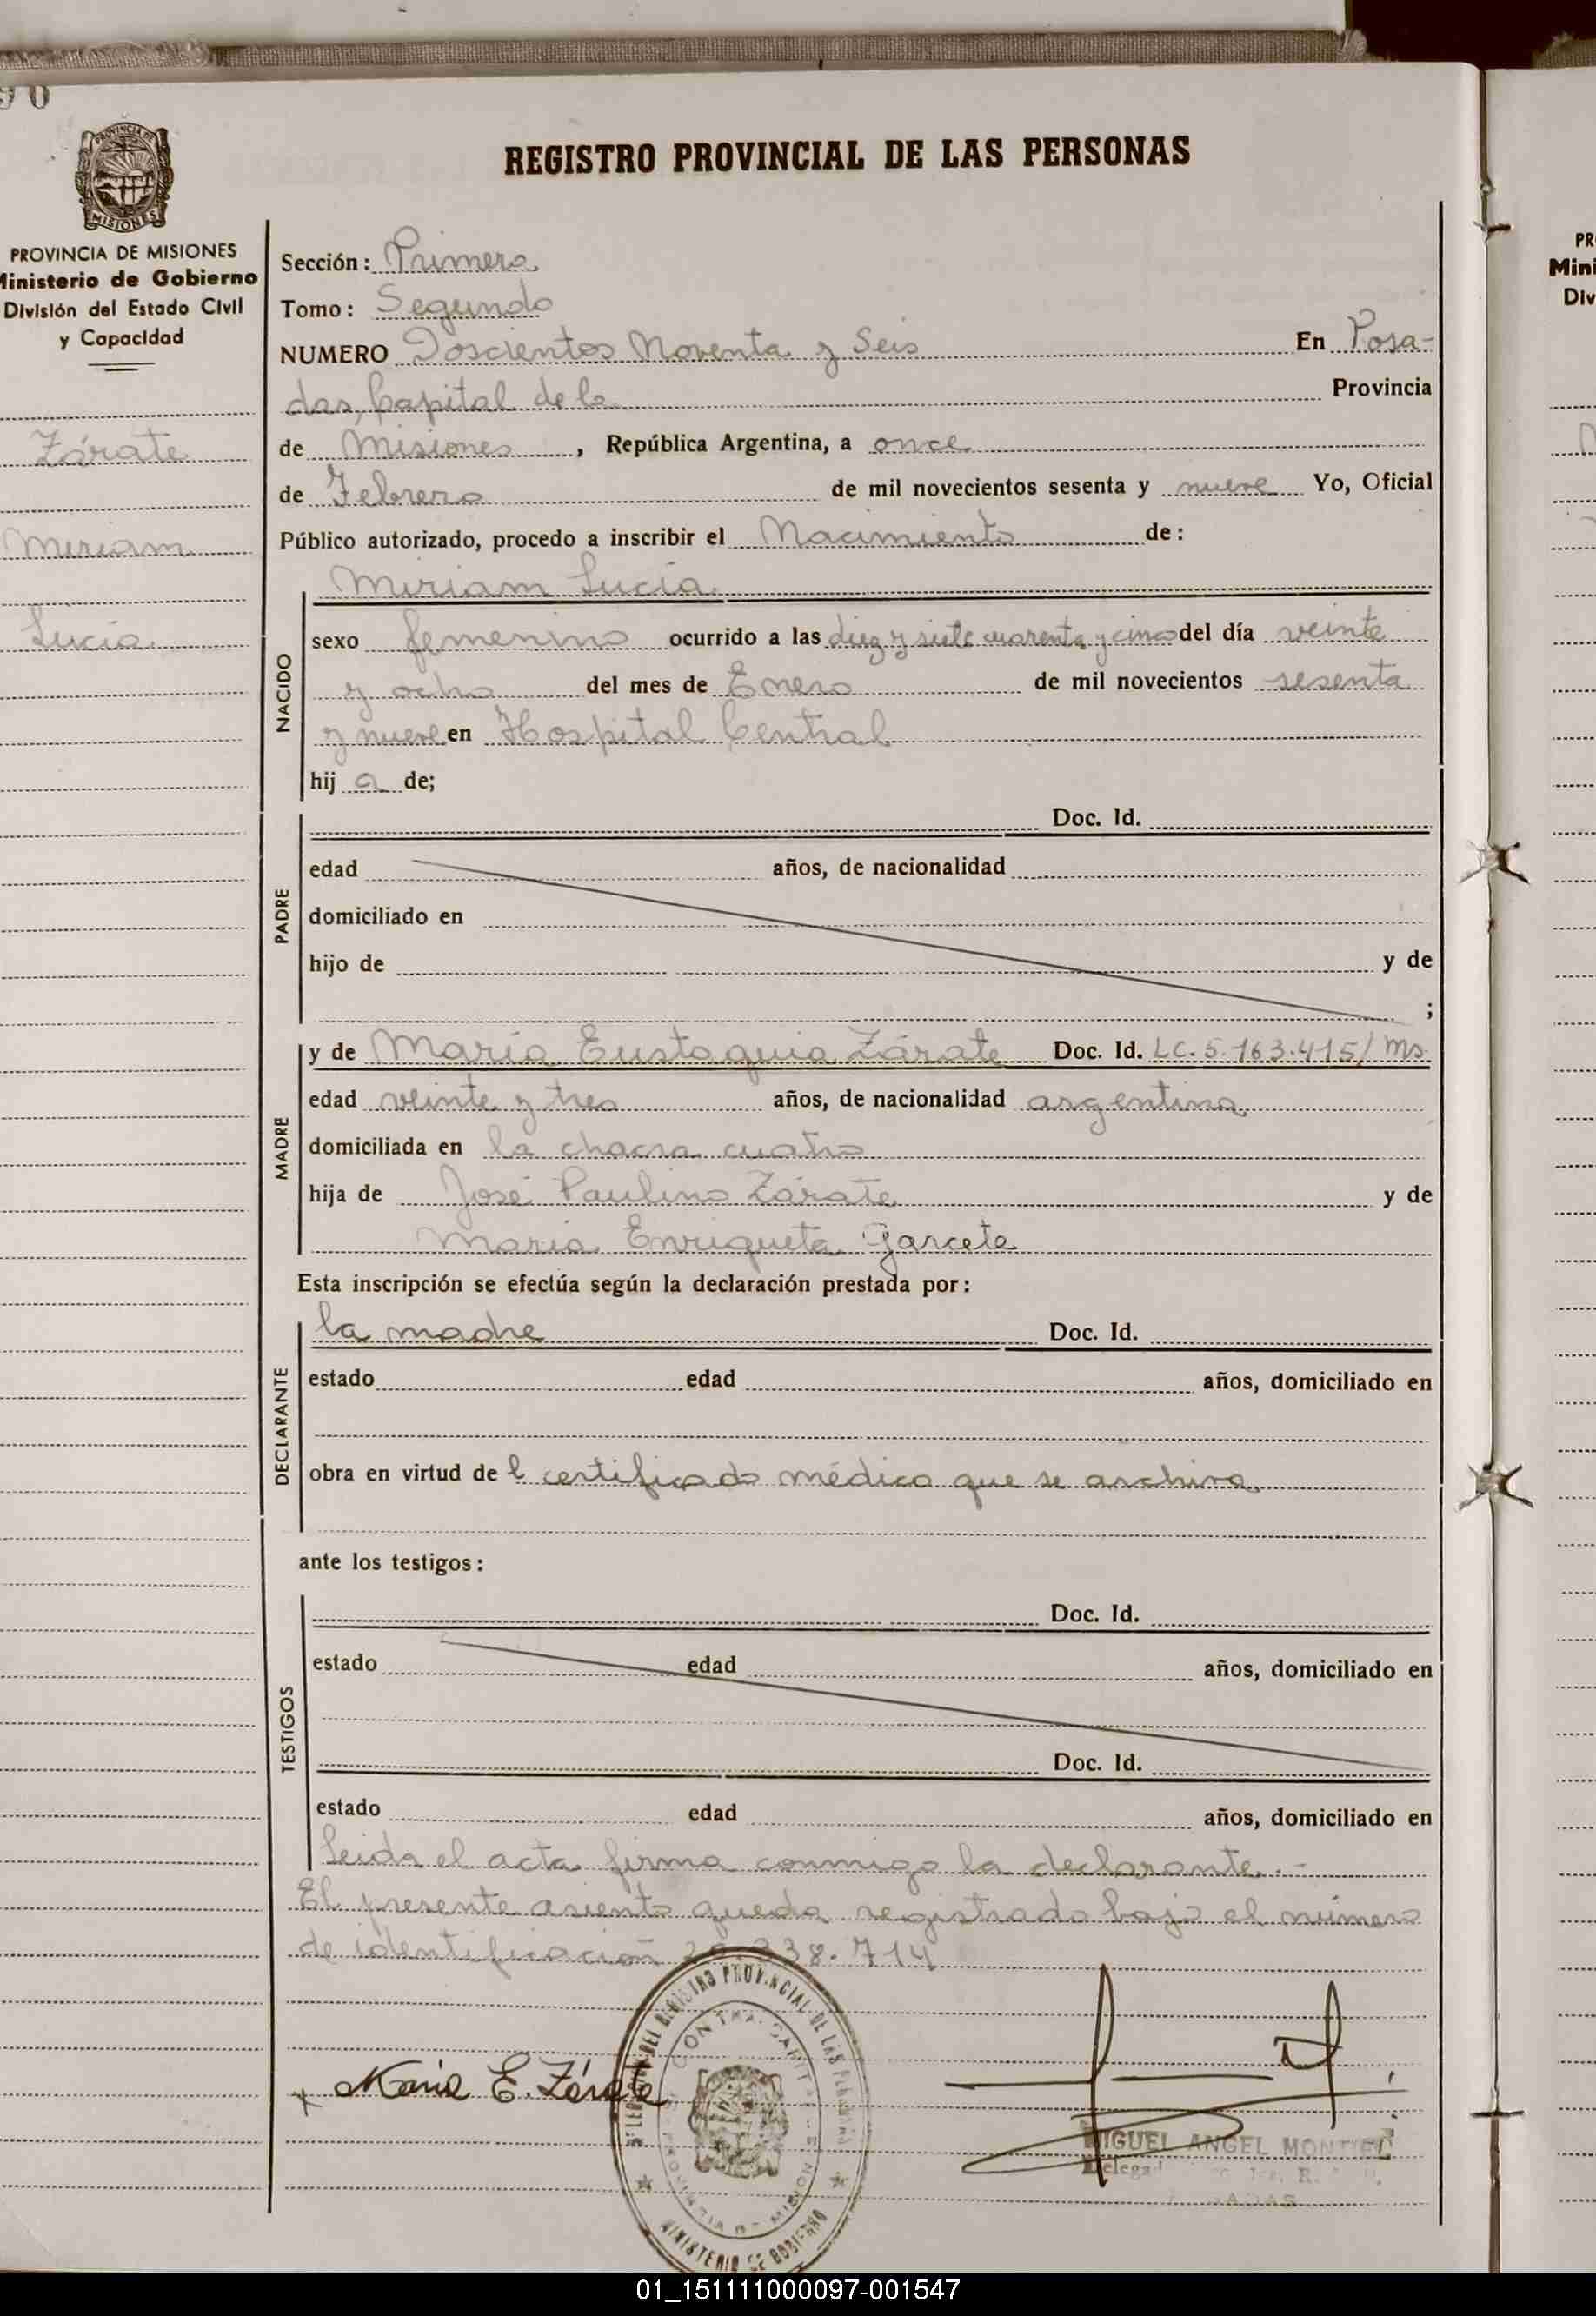 90
REGISTRO PROVINCIAL DE LAS PERSONAS
PROVINCIA DE
MISIONES
PROVINCIA DE MISIONES
Ministerio de Gobierno
División del Estado Civil
y Capacidad
Zárate
Miriam
Lucía
Sección: Primera
Tomo: Segundo
NUMERO Doscientos Noventa y Seis En Posa-
das, Capital de la Provincia
de Misiones, República Argentina, a once
de Febrero de mil novecientos sesenta y nueve Yo, Oficial
Público autorizado, procedo a inscribir el Nacimiento de:
Miriam Lucía
NACIDO
sexo femenino ocurrido a las diez y siete cuarenta y cinco del día veinte
y ocho del mes de Enero de mil novecientos sesenta
y nueve en Hospital Central
hij a de;
PADRE
Doc. Id.
edad años, de nacionalidad
domiciliado en
hijo de y de
;
MADRE
y de María Eustaquia Zárate Doc. Id. LC. 5.163.415/ Ms.
edad veinte y tres años, de nacionalidad argentina
domiciliada en la chacra cuatro
hija de José Paulino Zárate y de
María Enriqueta Garcete
Esta inscripción se efectúa según la declaración prestada por:
DECLARANTE
la madre Doc. Id.
estado edad años, domiciliado en
obra en virtud de l certificado médico que se archiva
ante los testigos:
TESTIGOS
Doc. Id.
estado edad años, domiciliado en
Doc. Id.
estado edad años, domiciliado en
Leida el acta firma conmigo la declarante.-
El presente asiento queda registrado bajo el número
de identificación 338.714
DEL REGISTRO PROVINCIAL DE LAS PERSONAS
PROVINCIA DE MISIONES
MINISTERIO DE GOBIERNO
x María E. Zárate
MIGUEL ANGEL MONTIEL
PR
Mini
Div
01_151111000097-001547